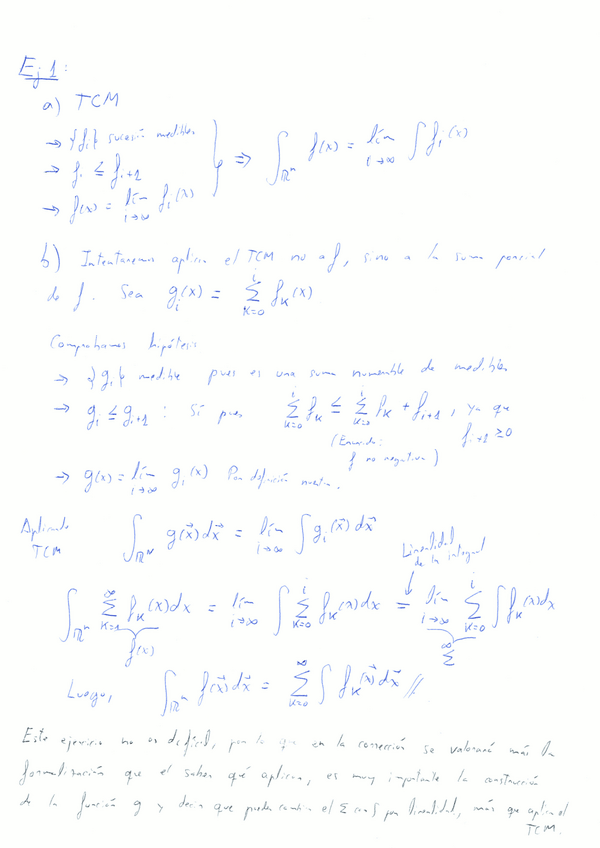 Ej 1:
a) TCM
→ {fᵢ} sucesión medibles
→ fᵢ ≤ fᵢ₊₁
→ f(x) = lím_{i→∞} fᵢ(x)
} ⇒ ∫_{ℝⁿ} f(x) = lím_{i→∞} ∫ fᵢ(x)
b) Intentaremos aplicar el TCM no a f, sino a la suma parcial
de f. Sea gᵢ(x) = Σ_{k=0}^{i} fₖ(x)
Comprobamos hipótesis
→ {gᵢ} medible pues es una suma numerable de medibles
→ gᵢ ≤ gᵢ₊₁ : Sí pues Σ_{k=0}^{i} fₖ ≤ Σ_{k=0}^{i} fₖ + fᵢ₊₁, ya que
fᵢ₊₁ ≥ 0
(Enunciado:
f no negativa)
→ g(x) = lím_{i→∞} gᵢ(x) Por definición nuestra.
Aplicando
TCM
∫_{ℝⁿ} g(x⃗)dx⃗ = lím_{i→∞} ∫ gᵢ(x⃗)dx⃗
Linealidad
de la integral
∫_{ℝⁿ} Σ_{k=1}^{∞} fₖ(x)dx = lím_{i→∞} ∫ Σ_{k=0}^{i} fₖ(x)dx = lím_{i→∞} Σ_{k=0}^{i} ∫ fₖ(x)dx
f(x) Σ^{∞}
Luego, ∫_{ℝⁿ} f(x⃗)dx⃗ = Σ_{k=0}^{∞} ∫ fₖ(x⃗)dx⃗ //
Este ejercicio no es difícil, por lo que en la corrección se valorará más la
formalización que el saber qué aplicar, es muy importante la construcción
de la función g y decir que puedes cambiar el Σ con ∫ por linealidad, más que aplicar el
TCM.